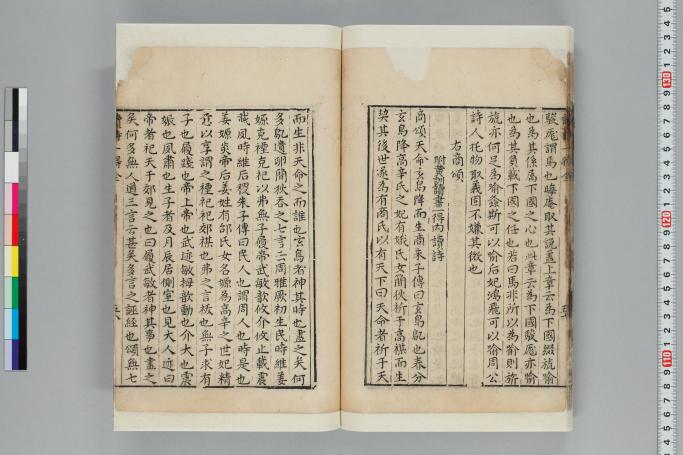 駿厖謂馬也晦庵取其說蓋上章云為下國綴旒喻
也為其係屬下國之心也此章云為下國駿厖亦喻
也為其負載下國之任也若曰馬非所以為喻則旂
旒亦何足為喻螽斯可以喻后妃鴻飛可以喻周公
詩人托物取義固不嫌其微也
右商頌
附黃訓讀書一得內讀詩
商頌天命玄鳥降而生商朱子傳曰玄鳥鳦也春分
玄鳥降高辛氏之妃有娀氏女簡狄祈于高禖而生
契其後世遂為有商氏以有天下曰天命者祈于天
而生非天命之而誰也玄鳥者神其時也盡之矣何
多鳦遺卵簡狄吞之七言二周雅厥初生民時維姜
嫄克禋克祀以弗無子履帝武敏歆攸介攸止載震
載夙時維后稷朱子傳曰民人也謂周人也時是也
姜嫄炎帝后姜姓有邰氏女名嫄為高辛之世妃精
意以享謂之禋祀祀郊禖也弗之言祓也無子求有
子也履踐也帝上帝也武迹敏拇歆動也介大也震
娠也夙肅也生子者及月辰居側室也見大人迹曰
帝者祀天于郊見之也曰履武敏者神其事也盡之
矣何多無人道三言云甚矣多言之誣經也頌無七